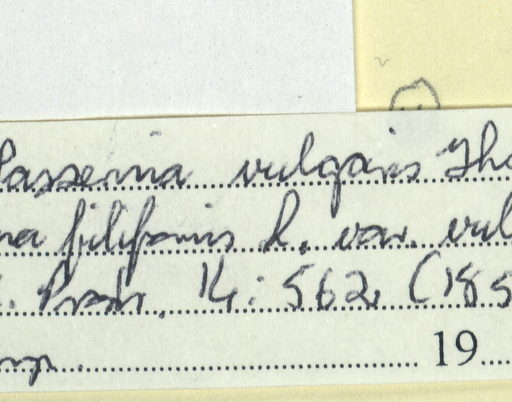 Passerina vulgaris Tho
na filiformis L. var. vul
. Prodr. 14: 562, (185
19